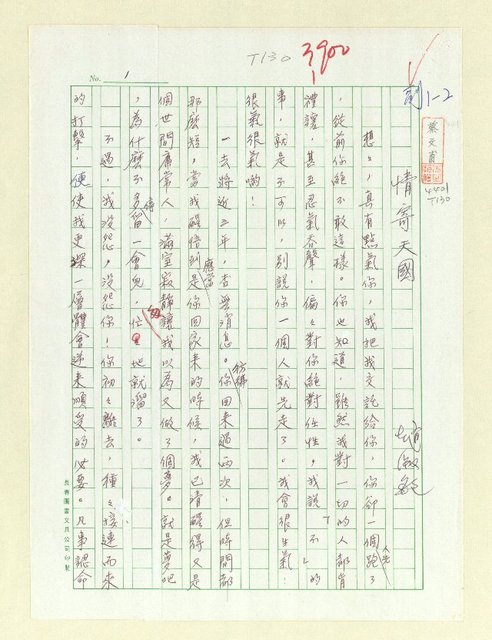 T130
3900
No. 1
副 1-2
蔡文甫
4401
T130
情寄天國
趙淑敏
想想,真有點氣你,我把我交託給你,你卻一個人先跑了
,從前你絕不敢這樣。你也知道,雖然我對一切的人都肯
禮讓,甚至忍氣吞聲,偏偏對你絕對任性,我說「不」的
事,就是不可以,別說你一個人就先走了。我會很生氣!
很氣很氣喲!
一去將近三年,杳無消息。你彷彿回來過兩次,但時間都
那麼短,當我醒悟到應當是你回家來的時候,我已清醒得又是
個世間庸常人,滿室寂靜讓我以為又做了個夢。就是夢吧
,為什麼不多留一會兒,匆匆地就溜了。
不過,我沒怨,沒怨你,你初初離去,種種接連而來
的打擊,便使我更深一層體會逆來順受的必要。凡事認命
長春園文具公司印製